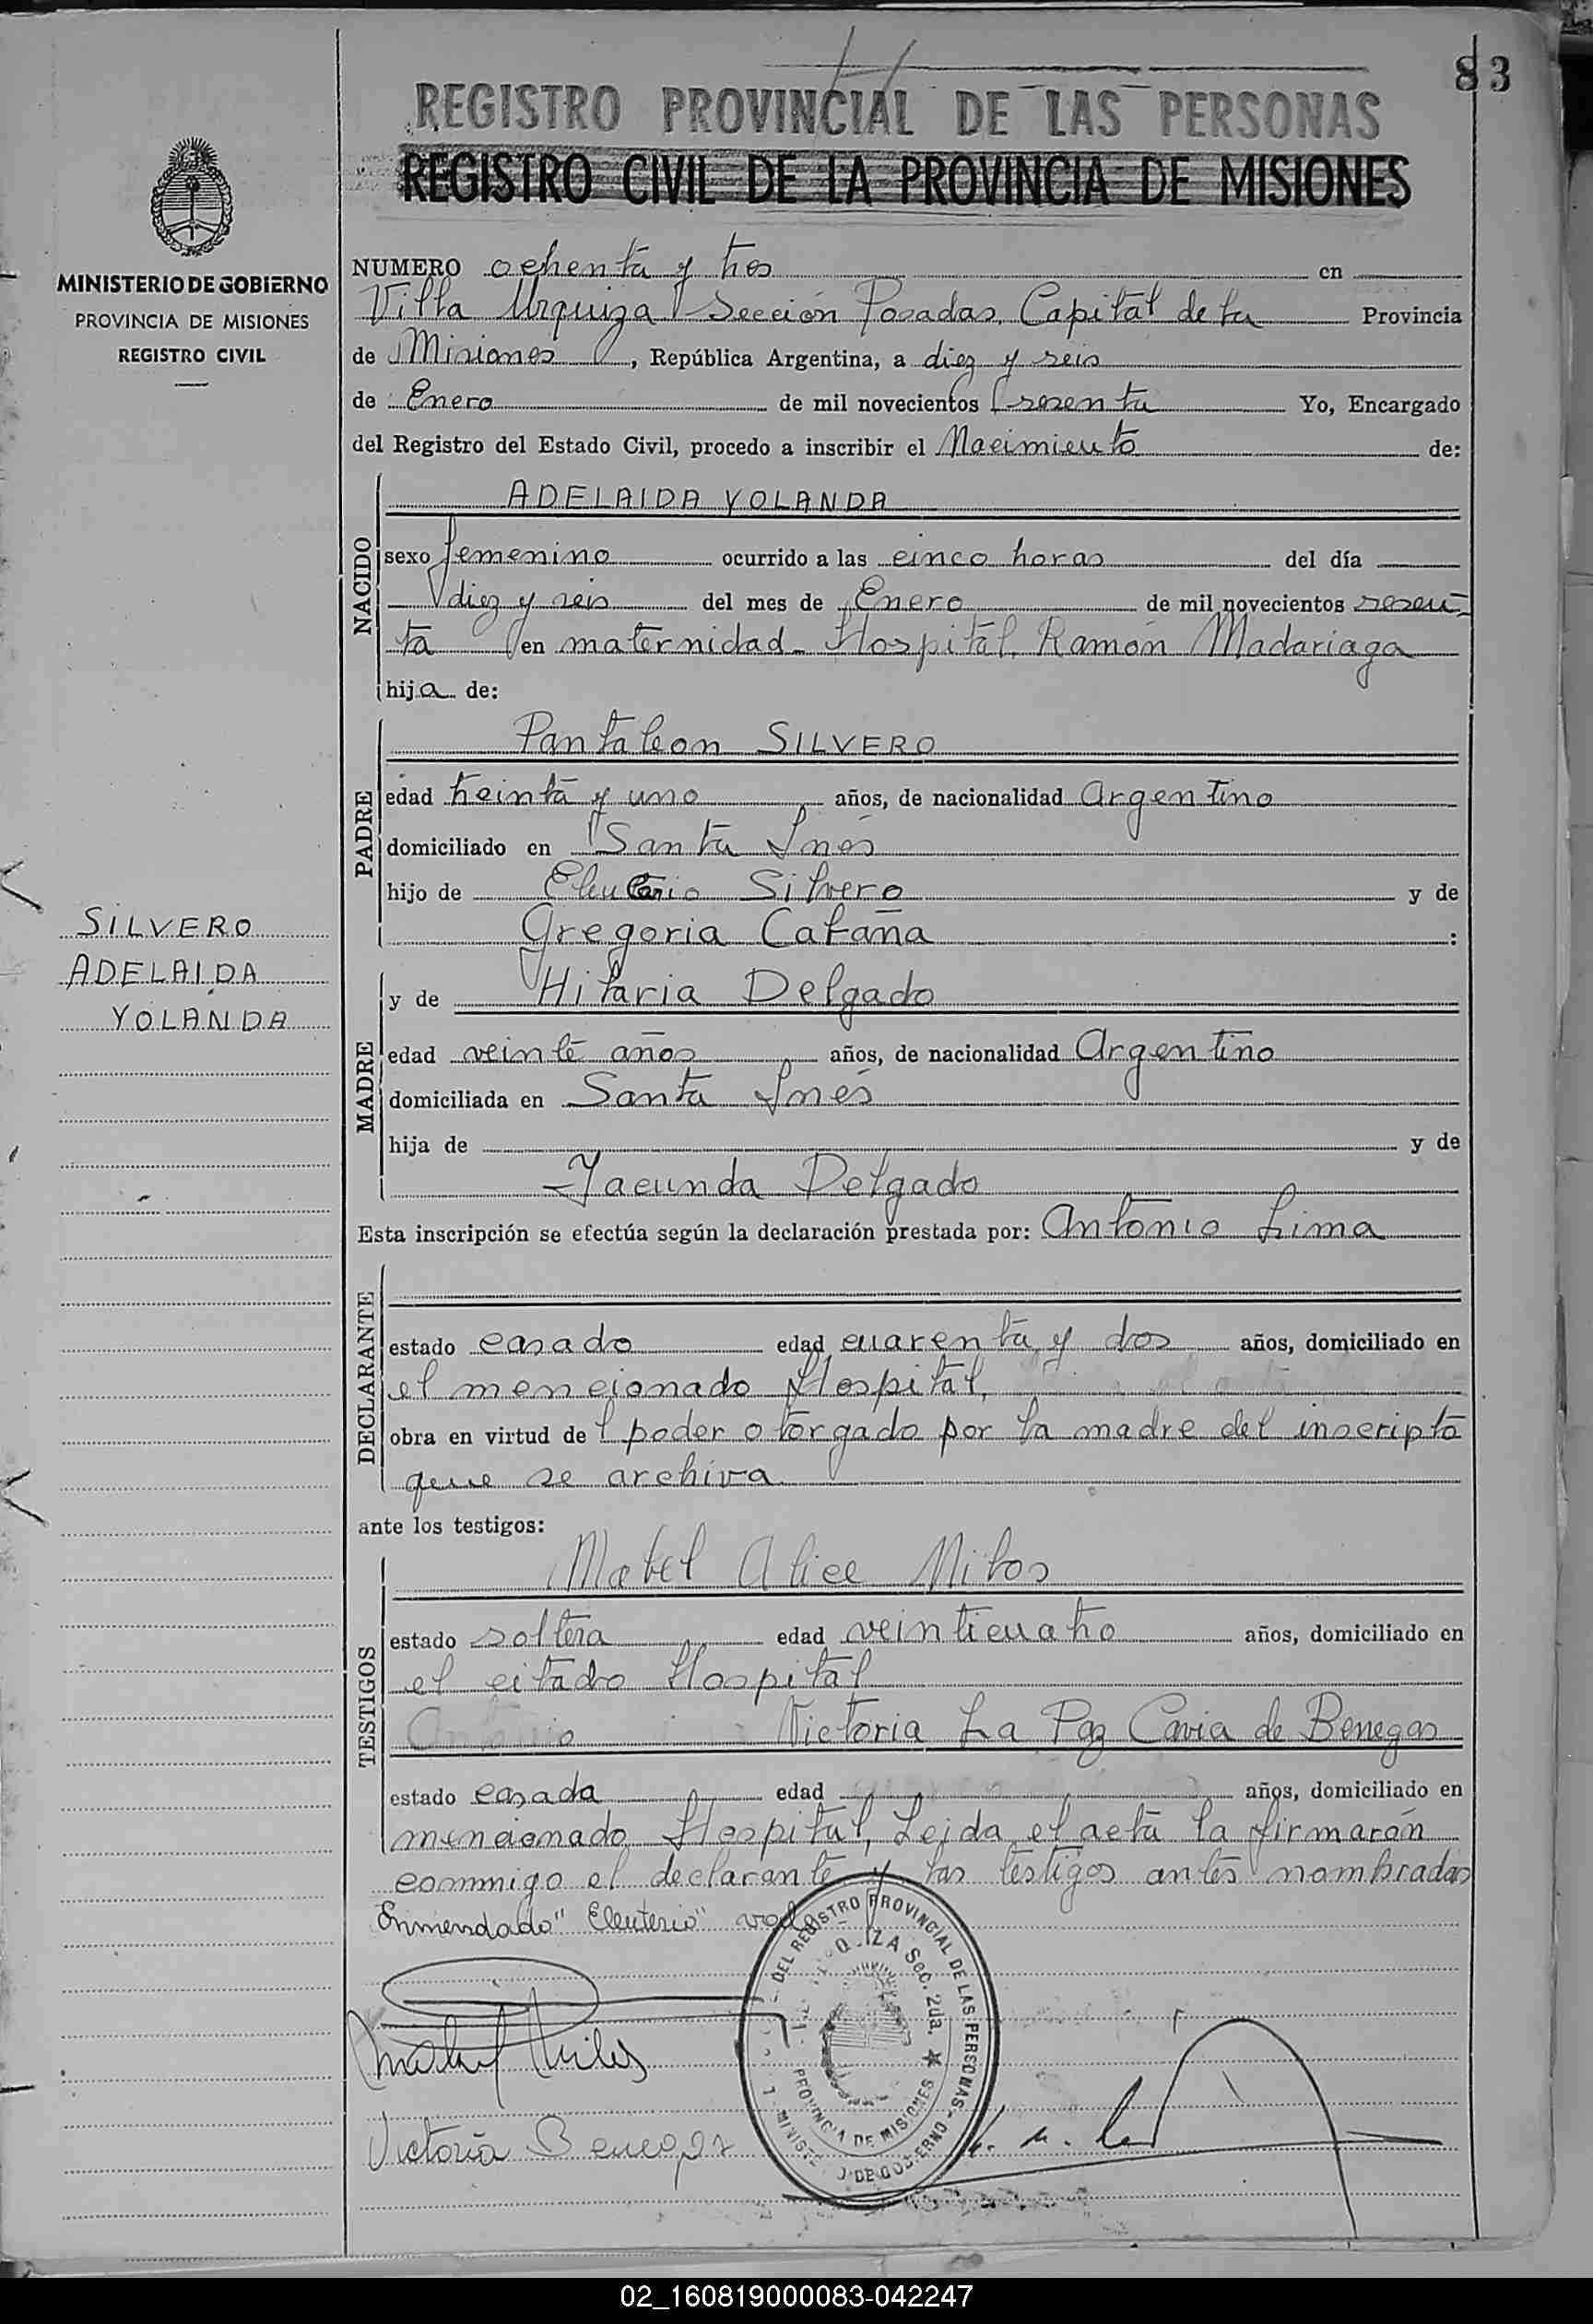 83
REGISTRO PROVINCIAL DE LAS PERSONAS
REGISTRO CIVIL DE LA PROVINCIA DE MISIONES
MINISTERIO DE GOBIERNO
PROVINCIA DE MISIONES
REGISTRO CIVIL
NUMERO ochenta y tres en
Villa Urquiza Sección Posadas, Capital de la Provincia
de Misiones, República Argentina, a diez y seis
de Enero de mil novecientos sesenta Yo, Encargado
del Registro del Estado Civil, procedo a inscribir el Nacimiento de:
NACIDO
ADELAIDA YOLANDA
sexo femenino ocurrido a las cinco horas del día
diez y seis del mes de Enero de mil novecientos sesen-
ta en maternidad- Hospital Ramón Madariaga
hija de:
PADRE
Pantaleon SILVERO
edad treinta y uno años, de nacionalidad Argentino
domiciliado en Santa Inés
hijo de Eleuterio Silvero y de
Gregoria Cataña :
SILVERO
ADELAIDA
YOLANDA
MADRE
y de Hilaria Delgado
edad veinte años años, de nacionalidad Argentino
domiciliada en Santa Inés
hija de y de
Facunda Delgado
Esta inscripción se efectúa según la declaración prestada por: Antonio Lima
DECLARANTE
estado casado edad cuarenta y dos años, domiciliado en
el mencionado Hospital,
obra en virtud del poder otorgado por la madre del inscripto
que se archiva
ante los testigos:
TESTIGOS
Mabel Alice Milos
estado soltera edad veinticuatro años, domiciliado en
el citado Hospital
Antonio Victoria La Paz Cavia de Benegas
estado casada edad años, domiciliado en
mencionado Hospital, Leida el acta la firmarón
conmigo el declarante y las testigos antes nombradas
Enmendado "Eleuterio" vale
DEL REGISTRO PROVINCIAL DE LAS PERSONAS
Sec. 2da.
PROVINCIA DE MISIONES
DE GOBIERNO
Victoria Benegas
02_160819000083-042247